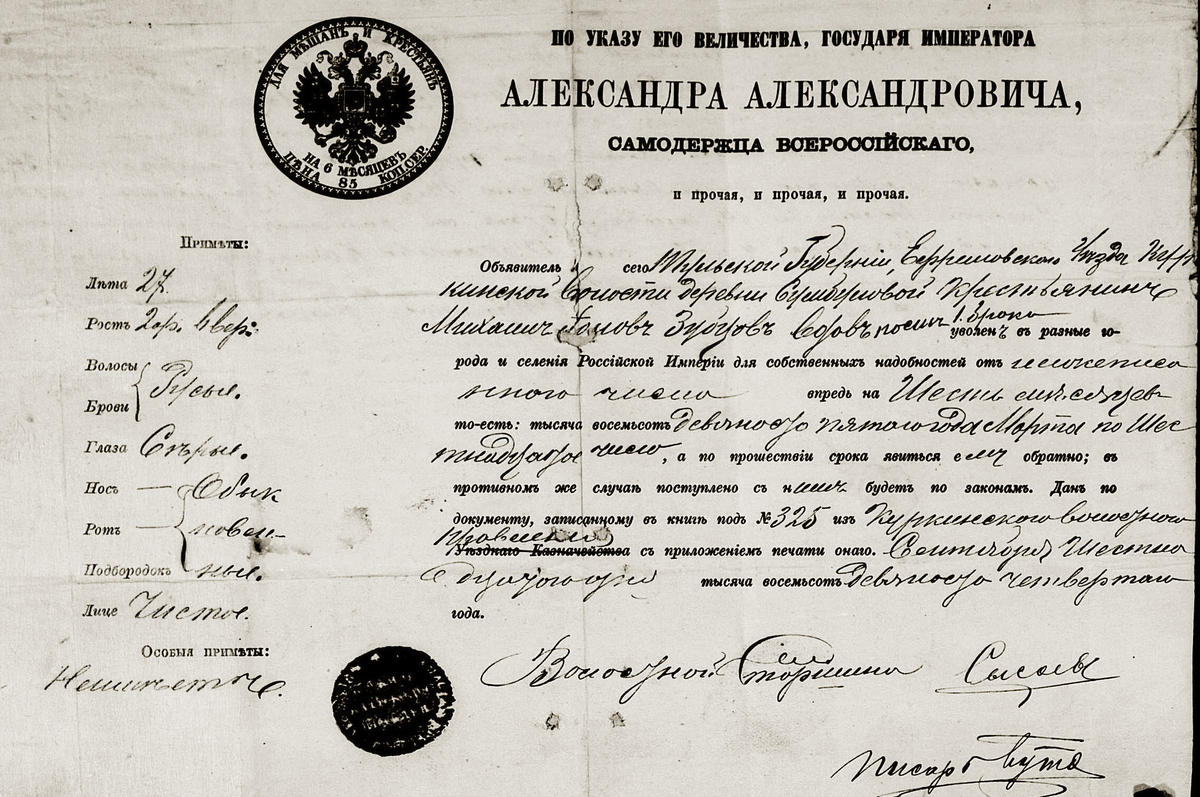 ДЛЯ МѢЩАНЪ И КРЕСТЬЯНЪ
НА 6 МѢСЯЦЕВЪ
ЦѢНА 85 КОП. СЕР.
ПО УКАЗУ ЕГО ВЕЛИЧЕСТВА, ГОСУДАРЯ ИМПЕРАТОРА
АЛЕКСАНДРА АЛЕКСАНДРОВИЧА,
САМОДЕРЖЦА ВСЕРОССІЙСКАГО,
и прочая, и прочая, и прочая.
Примѣты:
Лѣта 27.
Ростъ 2 ар. 6 вер.
Волосы
Брови
Русые.
Глаза Сѣрые.
Носъ — Обык
Ротъ — новен-
Подбородокъ ные.
Лице Чистое.
Особыя примѣты:
Неимѣетъ.
Объявитель сего Тульской Губерніи, Ефремовскаго Уѣзда Кур
кинской Волости деревни Крестьянинъ
Михаилъ Зубцовъ уволенъ въ разные го-
рода и селенія Россійской Имперіи для собственныхъ надобностей отъ нижеписа
нного числа впредь на Шесть мѣсяцевъ
то-есть: тысяча восемьсотъ девяносто пятого года Марта по Шес
тнадцатое число, а по прошествіи срока явиться ему обратно; въ
противномъ же случаѣ поступлено съ нимъ будетъ по законамъ. Данъ по
документу, записанному въ книгѣ подъ № 325 изъ Куркинского волостного
Правленія
Уѣзднаго Казначейства съ приложеніемъ печати онаго. Сентября Шестна
дцатого дня тысяча восемьсотъ девяносто четвертаго
года.
Волостной Старшина
Писарь